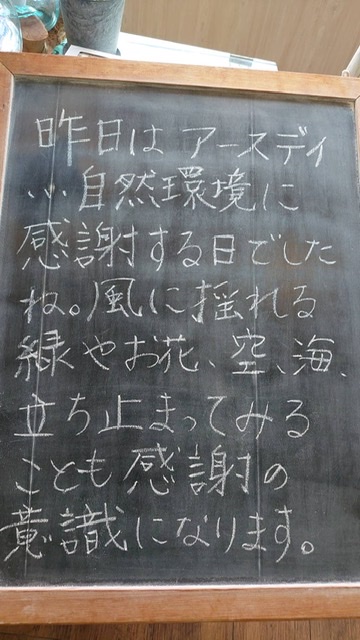 昨日は アースデイ
… 自然環境に
感謝する日でした
ね。風に揺れる
緑やお花、空、海、
立ち止まってみる
ことも感謝の
意識になります。